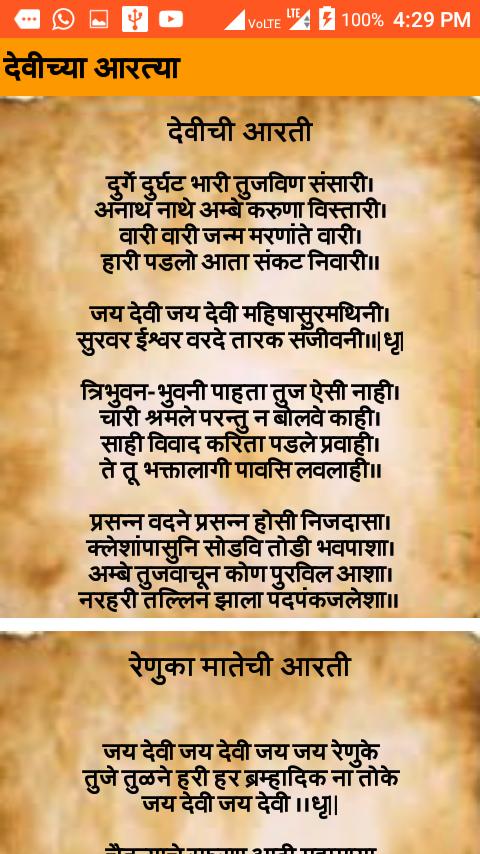 VoLTE LTE 100% 4:29 PM
देवीच्या आरत्या
देवीची आरती
दुर्गे दुर्घट भारी तुजविण संसारी।
अनाथ नाथे अम्बे करुणा विस्तारी।
वारी वारी जन्म मरणांते वारी।
हारी पडलो आता संकट निवारी॥
जय देवी जय देवी महिषासुरमथिनी।
सुरवर ईश्वर वरदे तारक संजीवनी॥|धृ|
त्रिभुवन-भुवनी पाहता तुज ऐसी नाही।
चारी श्रमले परन्तु न बोलवे काही।
साही विवाद करिता पडले प्रवाही।
ते तू भक्तालागी पावसि लवलाही॥
प्रसन्न वदने प्रसन्न होसी निजदासा।
क्लेशांपासुनि सोडवि तोडी भवपाशा।
अम्बे तुजवाचून कोण पुरविल आशा।
नरहरी तल्लिन झाला पदपंकजलेशा॥
रेणुका मातेची आरती
जय देवी जय देवी जय जय रेणुके
तुजे तुळने हरी हर ब्रम्हादिक ना तोके
जय देवी जय देवी ।।धृ||